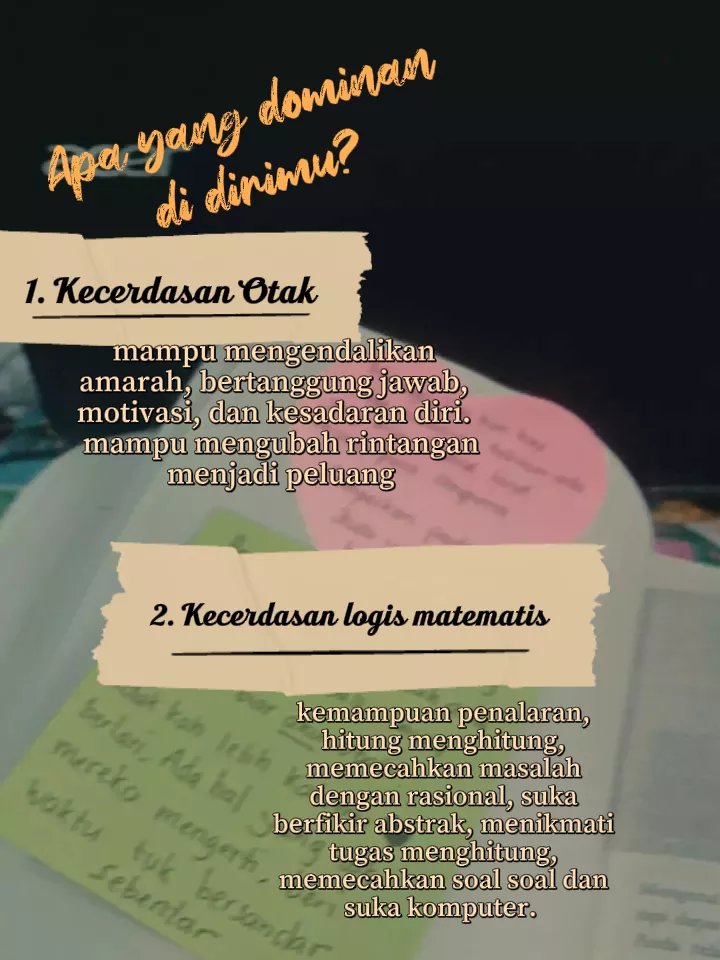 Apa yang dominan
di dirimu?
1. Kecerdasan Otak
mampu mengendalikan
amarah, bertanggung jawab,
motivasi, dan kesadaran diri.
mampu mengubah rintangan
menjadi peluang
2. Kecerdasan logis matematis
kemampuan penalaran,
hitung menghitung,
memecahkan masalah
dengan rasional, suka
berfikir abstrak, menikmati
tugas menghitung,
memecahkan soal soal dan
suka komputer.
lebih
berlari, Ada hal
mereka mengerti,
waktu tuk bersandar
sebentar